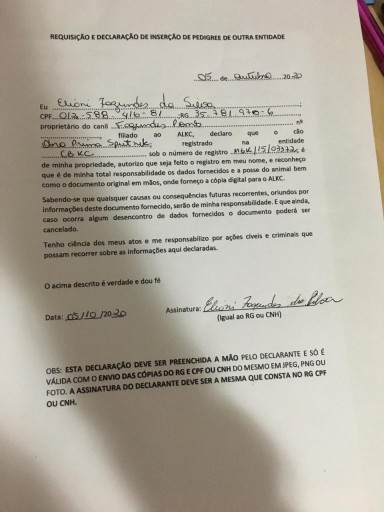 REQUISIÇÃO E DECLARAÇÃO DE INSERÇÃO DE PEDIGREE DE OUTRA ENTIDADE
05 de outubro 2020
Eu Elioni Fagundes da Silva
CPF 012-588 416-81 RG 35.781 970-6
proprietário do canil Fagundes nº
filiado ao ALKC, declaro que o cão
Dna Prima Sputnik registrado na entidade
CBKC sob o número de registro é
de minha propriedade, autorizo que seja feito o registro em meu nome, e reconheço
que é de minha total responsabilidade os dados fornecidos e a posse do animal bem
como o documento original em mãos, onde forneço a cópia digital para o ALKC.
Sabendo-se que quaisquer causas ou consequências futuras recorrentes, oriundos por
informações deste documento fornecido, serão de minha responsabilidade. E que ainda,
caso ocorra algum desencontro de dados fornecidos o documento poderá ser
cancelado.
Tenho ciência dos meus atos e me responsabilizo por ações cíveis e criminais que
possam recorrer sobre as informações aqui declaradas.
O acima descrito é verdade e dou fé
Data: 05/10/2020 Assinatura: Elioni Fagundes da Silva
(Igual ao RG ou CNH)
OBS: ESTA DECLARAÇÃO DEVE SER PREENCHIDA A MÃO PELO DECLARANTE E SÓ É
VÁLIDA COM O ENVIO DAS CÓPIAS DO RG E CPF OU CNH DO MESMO EM JPEG, PNG OU
FOTO. A ASSINATURA DO DECLARANTE DEVE SER A MESMA QUE CONSTA NO RG CPF
OU CNH.